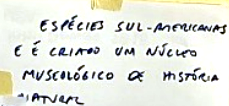 ESPÉCIES SUL-AMERICANAS
E É CRIADO UM NÚCLEO
MUSCOLÓGICO DE HISTÓRIA
NATURAL